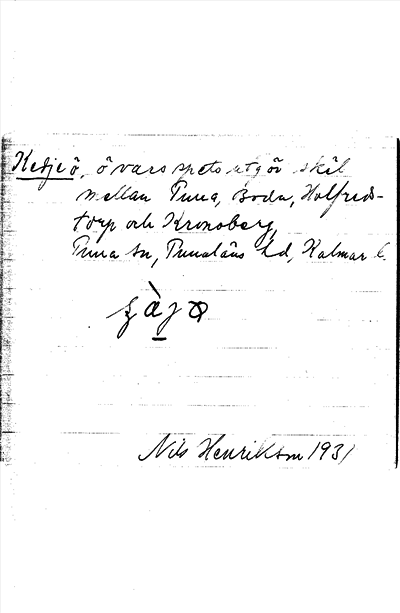 Kedjeö, ö vars spets utgör skil
mellan Tuna, Boda, Holfreds-
torp och Kronoberg,
Tuna sn, Tunaläns hd, Kalmar l.
Nils Henrikson 1931